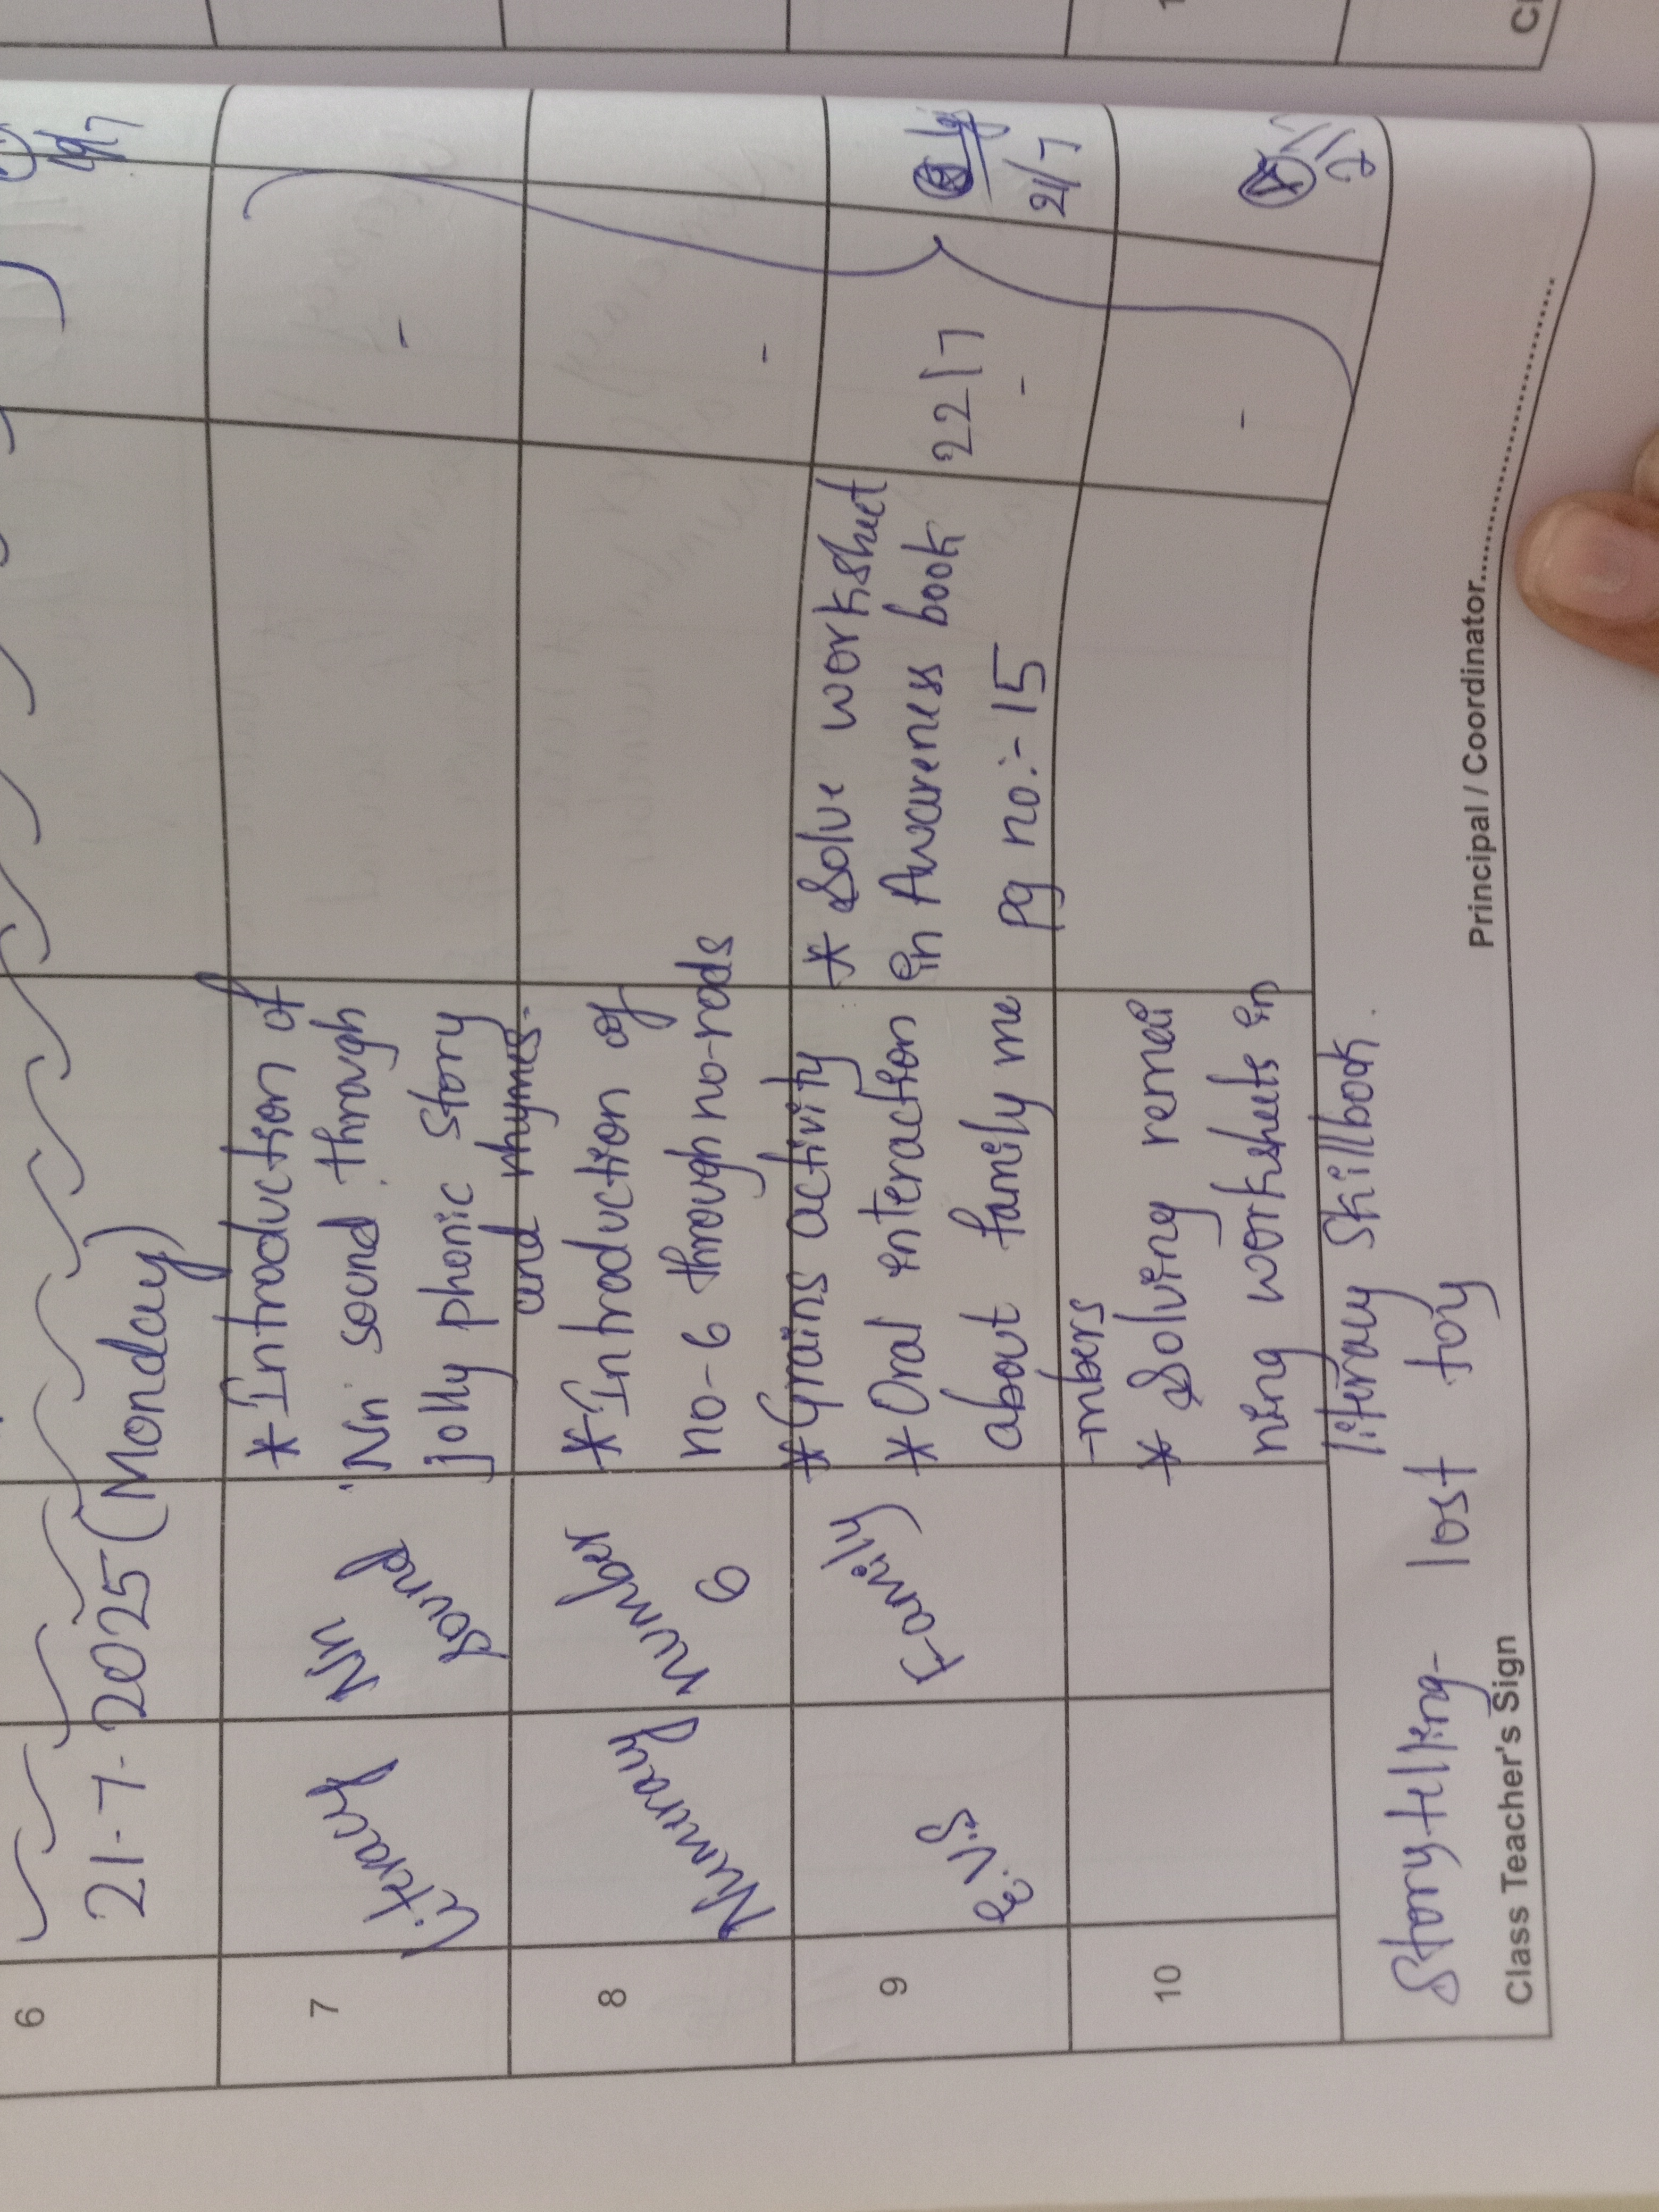 6
21-7-2025 (Monday)
7
Literacy
Nn
sound
*Introduction of
'Nn' sound through
jolly phonic story
and rhymes.
8
Numeracy
number
6
*Introduction of
no-6 through no-rods
9
E.V.S
Family
*Grains activity
*Oral interaction
about family me
-mbers
* Solve worksheet
in Awareness book
pg no:- 15
22/7
-
21/7
10
* Solving remai
ning worksheets in
literacy skillbook.
Storytelling- lost toy
Class Teacher's Sign
Principal / Coordinator